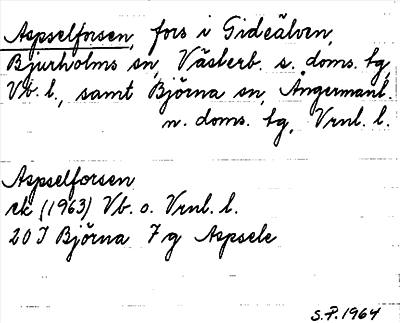 Aspselforsen, fors i Gideälven,
Bjurholms sn, Västerb. s. doms. tg,
Vb. l., samt Björna sn, Ångermanl.
n. doms. tg, Vrnl. l.
Aspselforsen
ek (1963) Vb. o. Vrnl. l.
20 I Björna 7 g Aspsele
S.P. 1964